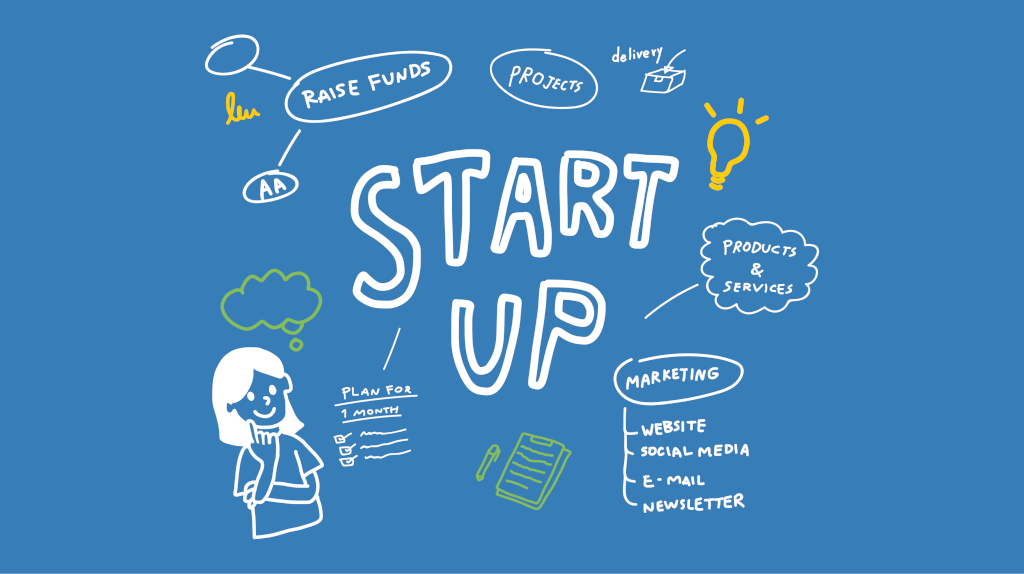 RAISE FUNDS
PROJECTS
delivery
AA
START
UP
PRODUCTS
&
SERVICES
PLAN FOR
1 MONTH
MARKETING
WEBSITE
SOCIAL MEDIA
E-MAIL
NEWSLETTER